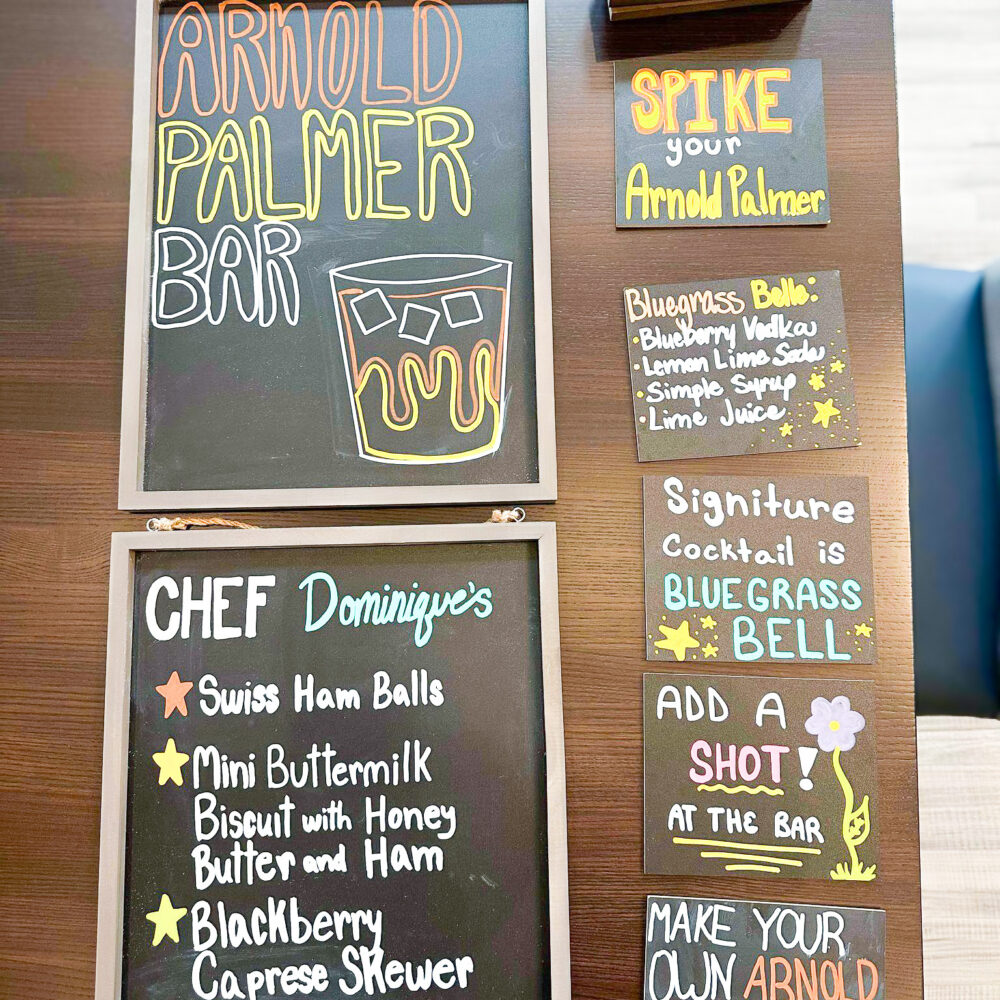 ARNOLD
PALMER
BAR
CHEF Dominique's
Swiss Ham Balls
Mini Buttermilk
Biscuit with Honey
Butter and Ham
Blackberry
Caprese Skewer
SPIKE
your
Arnold Palmer
Bluegrass Belle:
• Blueberry Vodka
• Lemon Lime Soda
• Simple Syrup
• Lime Juice
Signiture
Cocktail is
BLUEGRASS
BELL
ADD A
SHOT!
AT THE BAR
MAKE YOUR
OWN ARNOLD